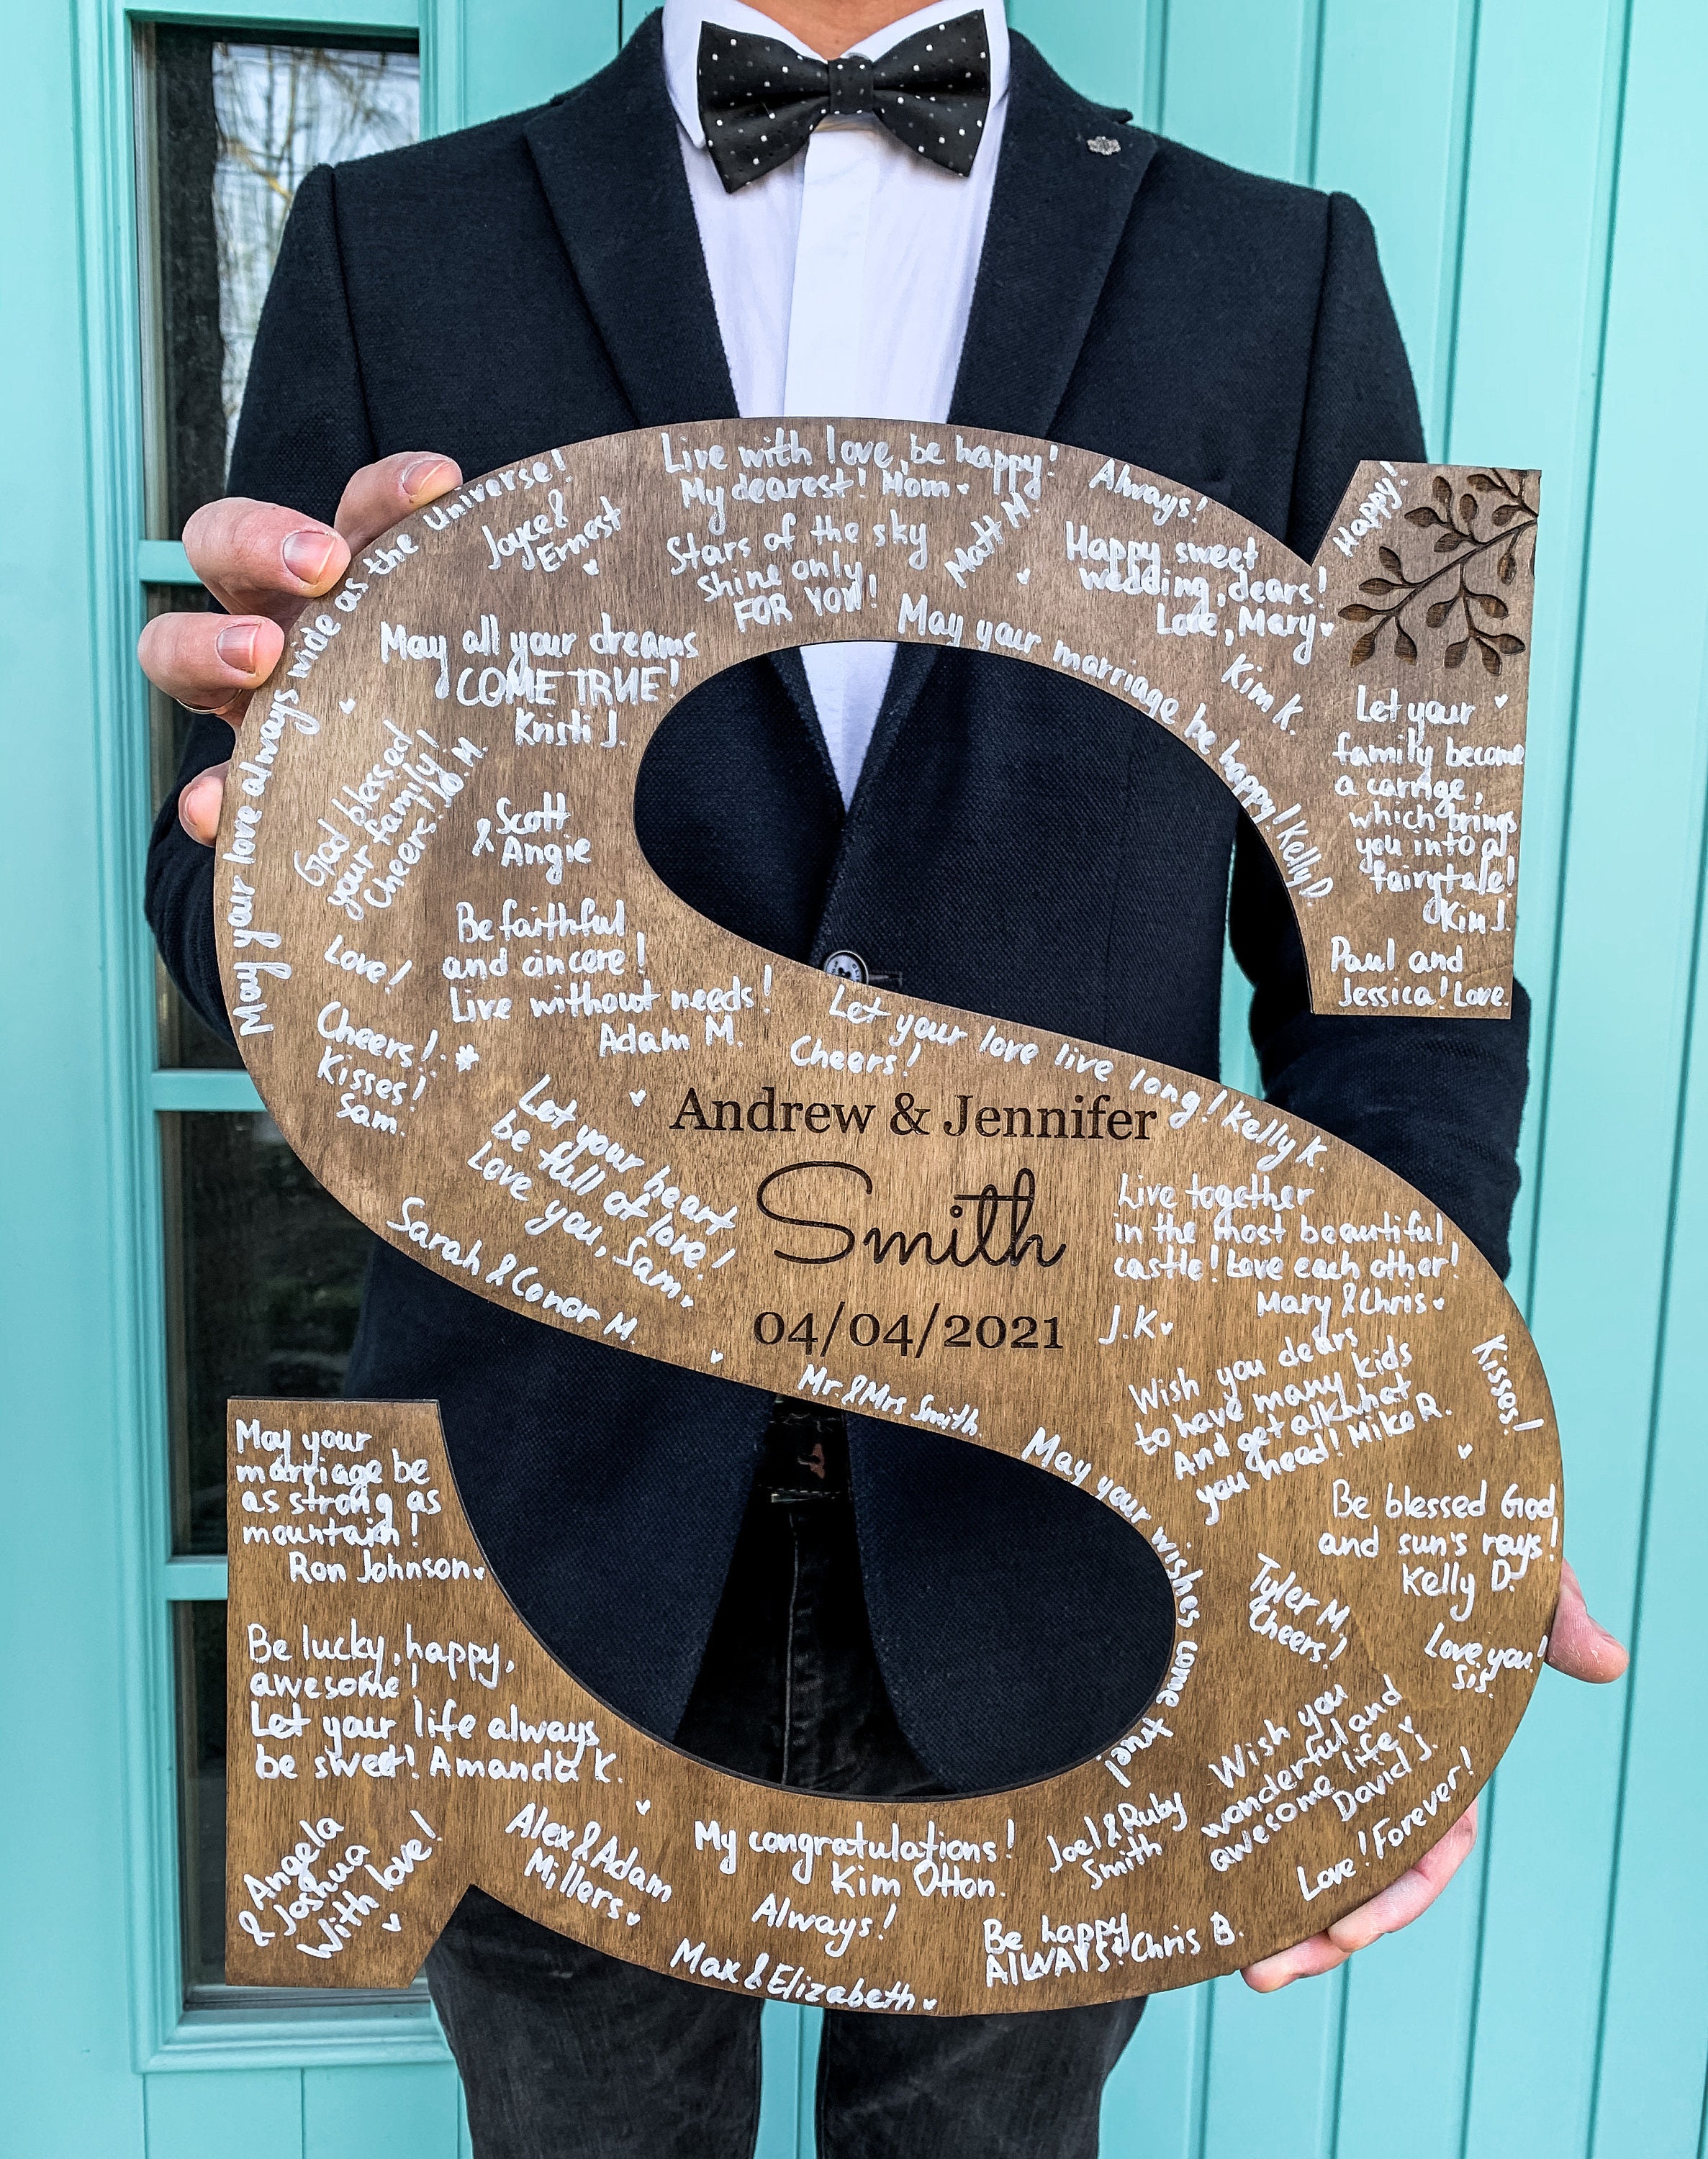 May your love always wide as the universe!
Joyce &
Ernest
Live with love, be happy!
My dearest! Mom
Stars of the sky
Shine only
FOR YOU!
Matt M.
Always!
Happy sweet
wedding, dears!
Love, Mary
Kim K.
Happy!
May your marriage be happy! Kelly D
Let your
family become
a carrige,
which brings
you into a
fairytale!
Kim J.
Paul and
Jessica! Love.
May all your dreams
COME TRUE!
Kristi J.
God blessed
your family!
Cheers!
Scott
& Angie
Love!
Be faithful
and cincere!
Live without needs!
Adam M.
Cheers!
Kisses!
Sam.
Let your love live long! Kelly K.
Cheers!
Let your heart
be full of love!
Love you, Sam.
Sarah & Conor M.
Andrew & Jennifer
Smith
04/04/2021
Live together
in the most beautiful
castle! Love each other!
Mary & Chris
J.K.
Mr & Mrs Smith
Wish you dears
to have many kids
And get all what
you need! Mike R.
Kisses!
May your wishes come true!
Be blessed God
and sun's rays!
Kelly D.
Tyler M.
Cheers!
Love you!
Sis.
May your
marriage be
as strong as
mountain!
Ron Johnson
Be lucky, happy,
awesome!
Let your life always
be sweet! Amanda K.
Angela
& Joshua
With love!
Alex & Adam
Millers
My congratulations!
Kim Otton.
Always!
Max & Elizabeth
Joel & Ruby
Smith
Wish you
wonderful and
awesome life
David J.
Love! Forever!
Be happy
AlWAYS! Chris B.